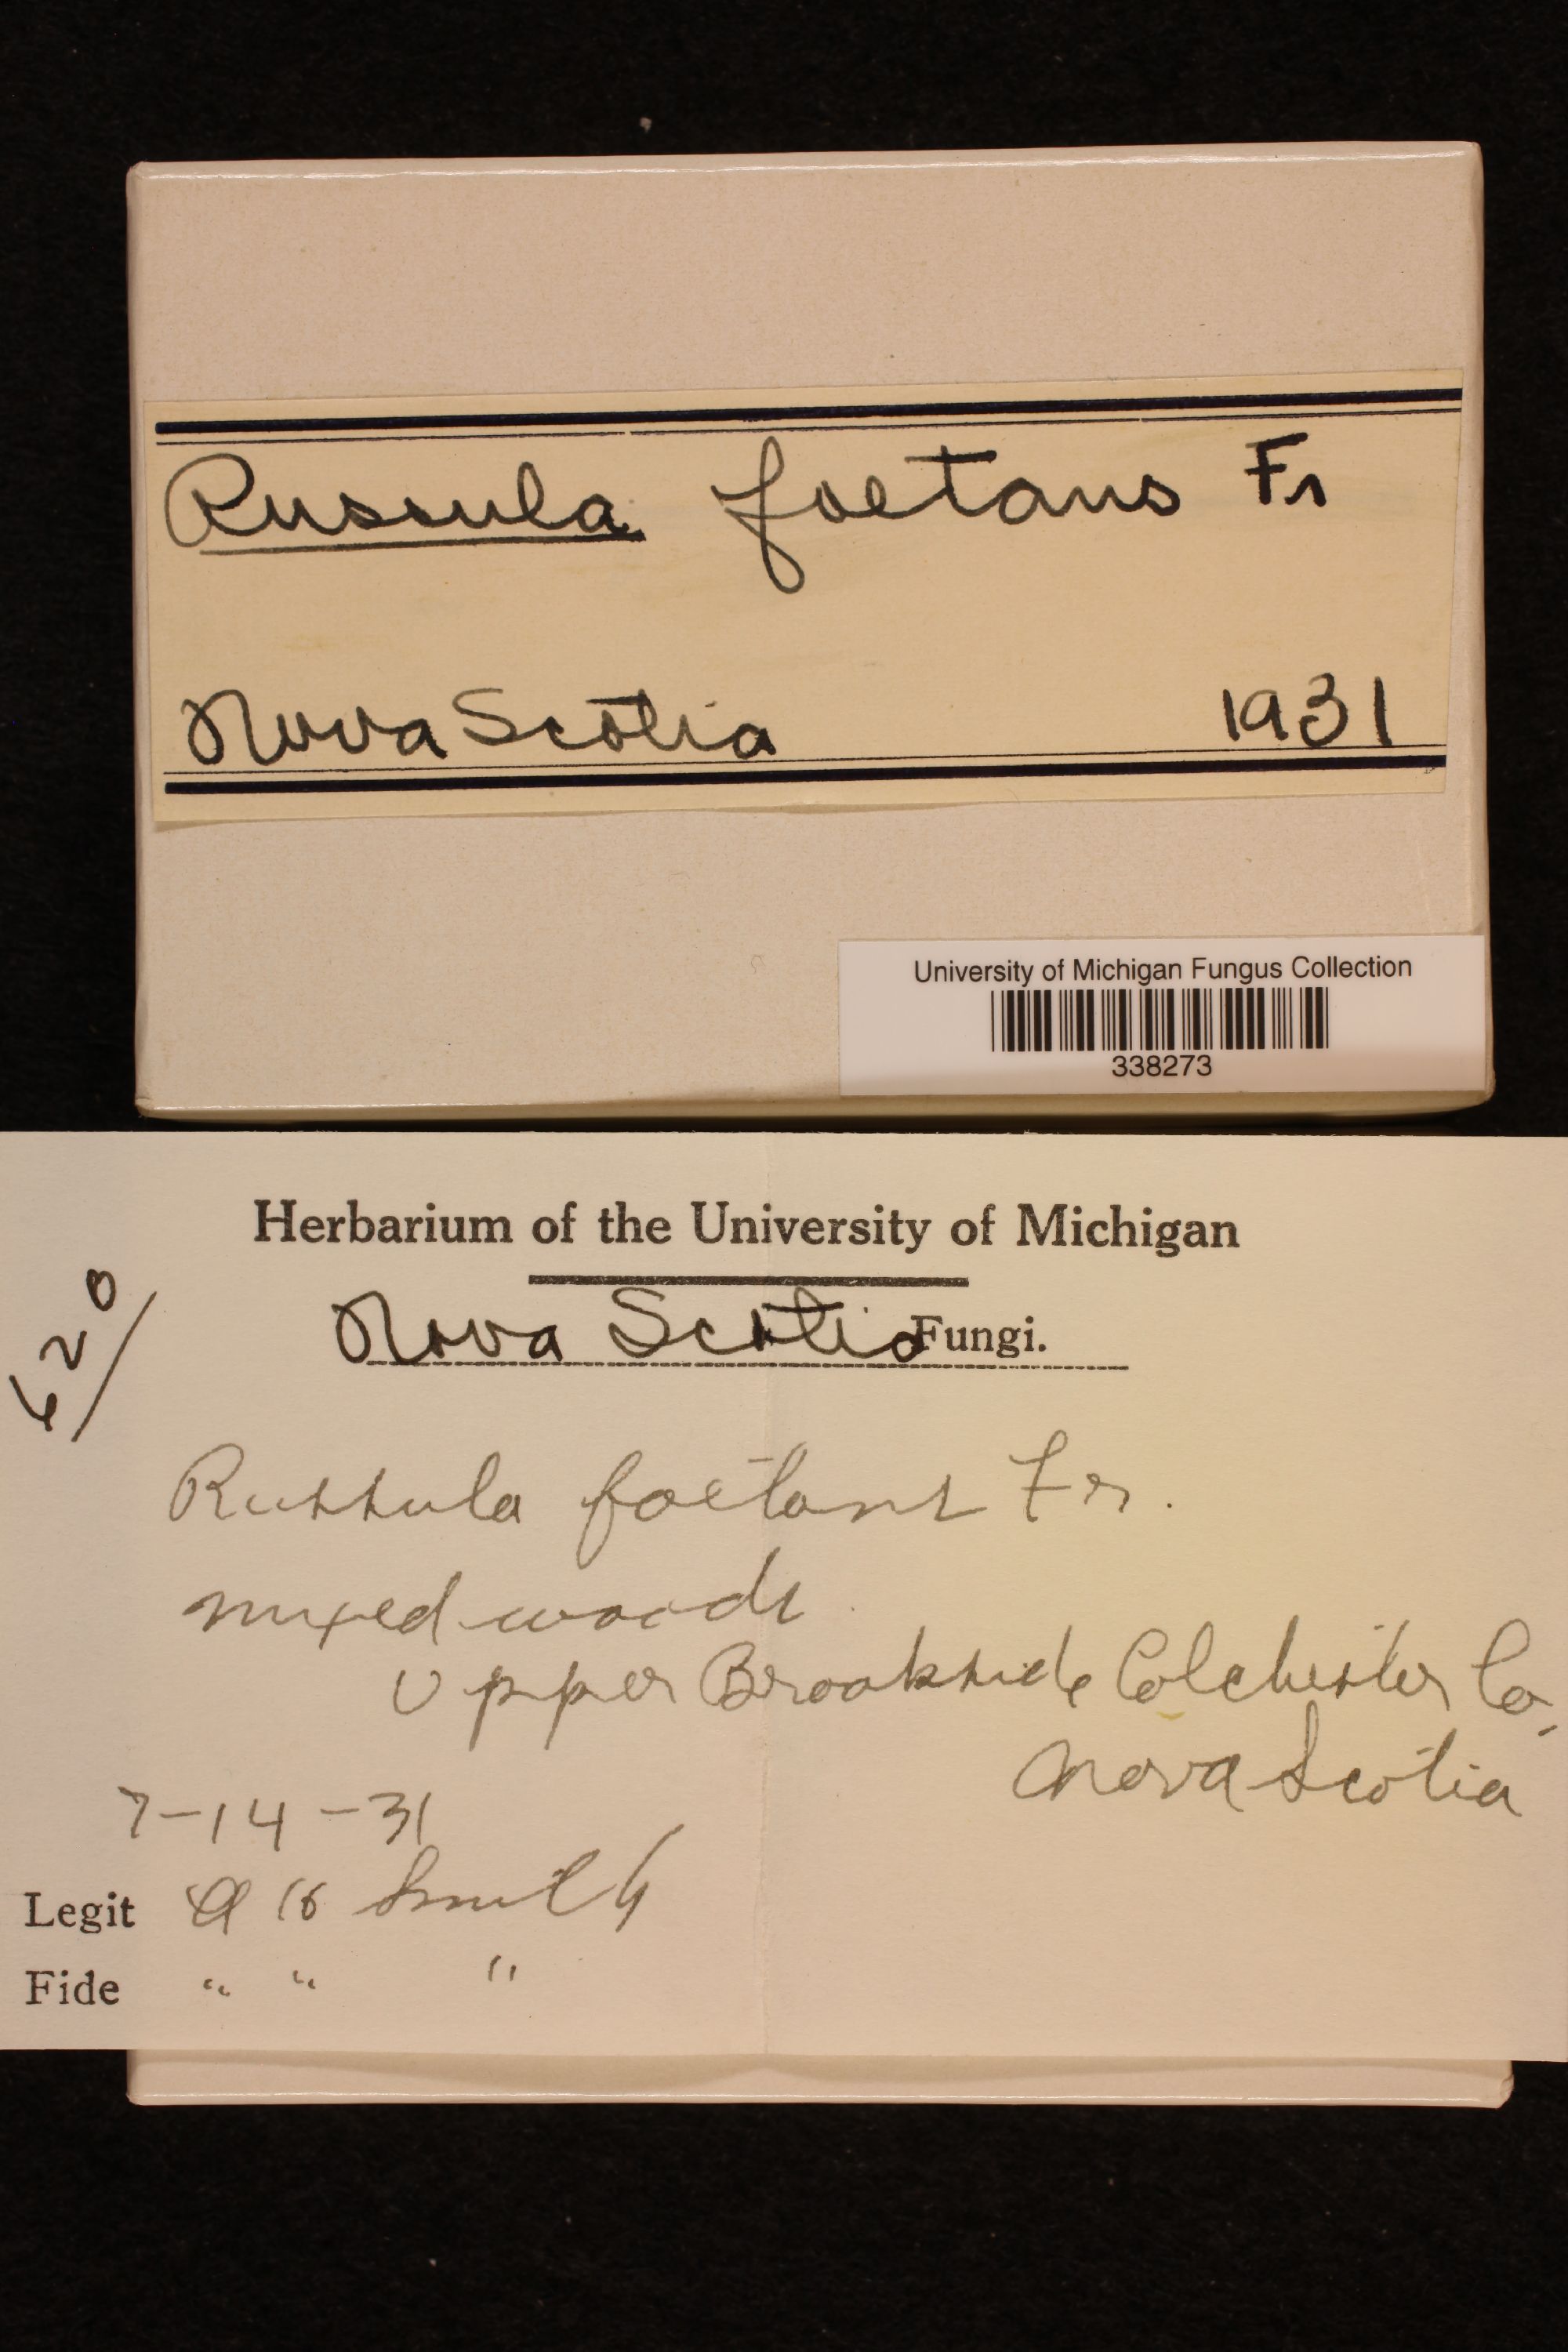 Russula foetans Fr
Nova Scotia 1931
University of Michigan Fungus Collection
338273
Herbarium of the University of Michigan
620
Nova Scotia Fungi.
Russula foetans Fr.
mixed woods
Upper Brookside Colchester Co,
Nova Scotia
7-14-31
Legit A H Smith
Fide " " "